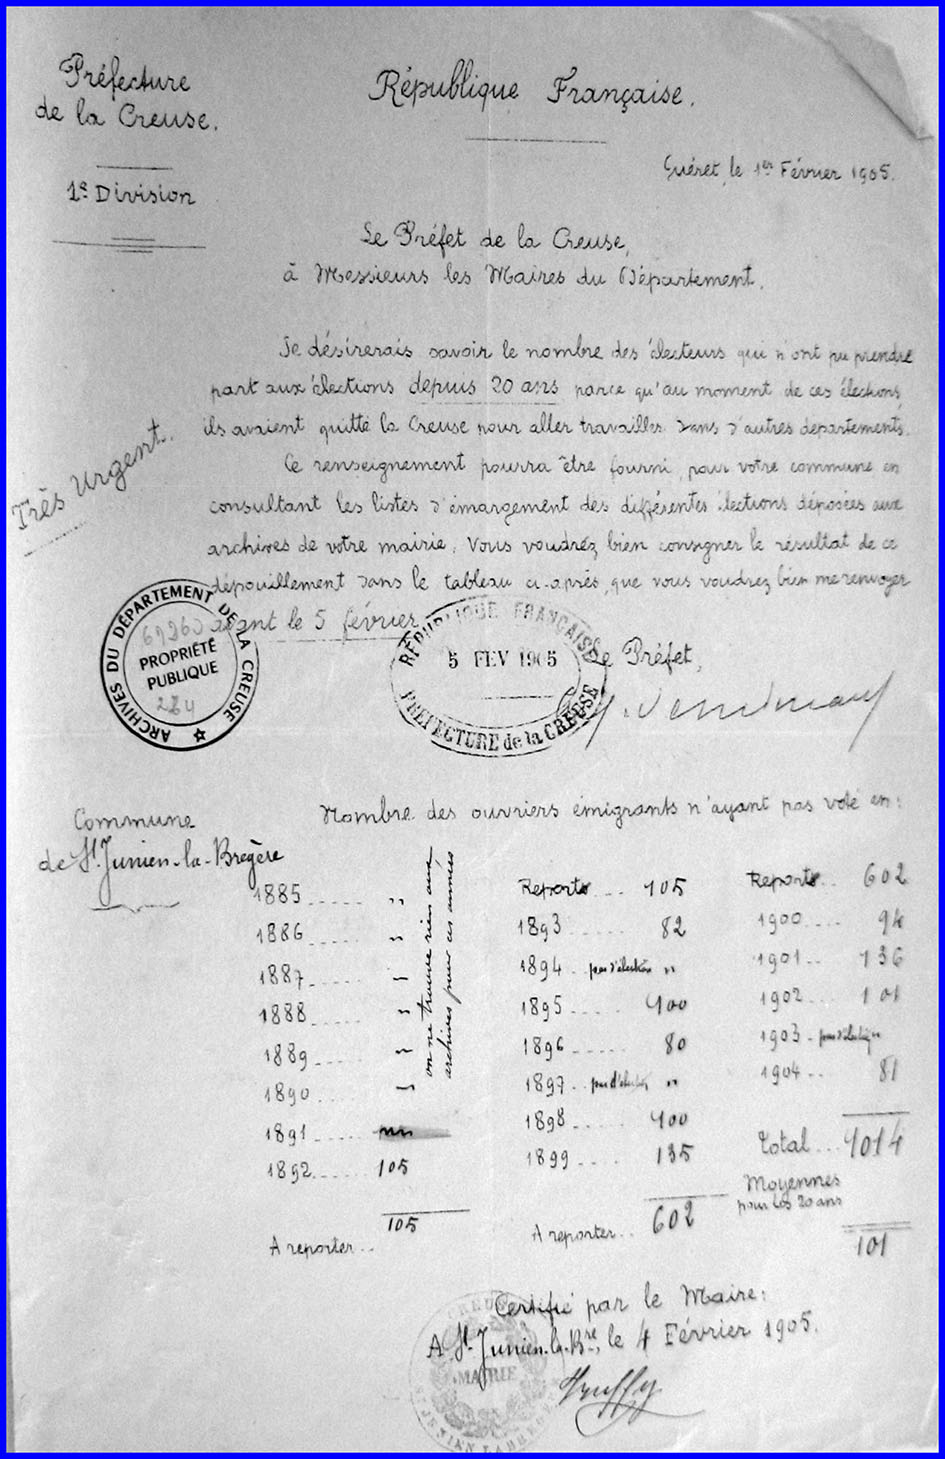 Préfecture
de la Creuse.
République Française.
1e Division
Guéret, le 1er Février 1905.
Le Préfet de la Creuse,
à Messieurs les Maires du Département.
Très Urgent.
Je désirerais savoir le nombre des électeurs qui n'ont pu prendre
part aux élections depuis 20 ans parce qu'au moment de ces élections,
ils avaient quitté la Creuse pour aller travailler dans d'autres départements.
Ce renseignement pourra être fourni, pour votre commune en
consultant les listes d'émargement des différentes élections déposées aux
archives de votre mairie. Vous voudrez bien consigner le résultat de ce
dépouillement dans le tableau ci-après, que vous voudrez bien me renvoyer
avant le 5 février.
ARCHIVES DU DÉPARTEMENT DE LA CREUSE
PROPRIÉTÉ
PUBLIQUE
RÉPUBLIQUE FRANÇAISE
5 FEV 1905
PRÉFECTURE de la CREUSE
Le Préfet,
Commune
de St. Junien-la-Bregère
Nombre des ouvriers émigrants n'ayant pas voté en:
1885 ..... "
1886 ..... "
1887 ..... "
1888 ..... "
1889 ..... "
1890 ..... "
1891 .....
1892 ..... 105
105
A reporter ..
on ne trouve rien aux
archives pour ces années
Reports ... 105
1893 ..... 82
1894 .. pas d'élection "
1895 ..... 100
1896 ..... 80
1897 .. pas d'élection "
1898 ..... 100
1899 .... 135
602
A reporter ..
Reports .. 602
1900 .... 94
1901 .... 136
1902 ... 101
1903 . pas d'élection
1904 .. 81
Total ... 1014
Moyennes
pour les 20 ans
101
Certifié par le Maire:
A St. Junien-la-Bre, le 4 Février 1905.
MAIRIE